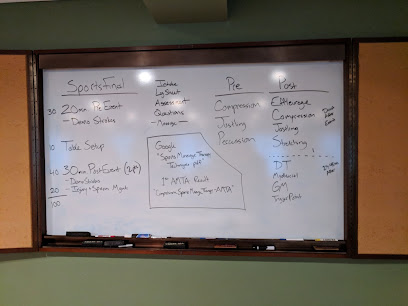 Sports Final
30 20min Pre Event
- Demo Strokes
10 Table Setup
40 30min Post Event
- Demo Strokes
20 - Injury + Spasm Mgmt
100
Intake
Lg Sheet
Assessment
Questions
- Massage
Google
"Sports Massage Therapy
Techniques pdf"
1st AMTA Result
"Compression Sports Massage Therapy - AMTA"
Pre
Compression
Jostling
Percussion
Post
Effleurage
Compression
Jostling
Stretching
DT
Myofascial
GM
Trigger Point